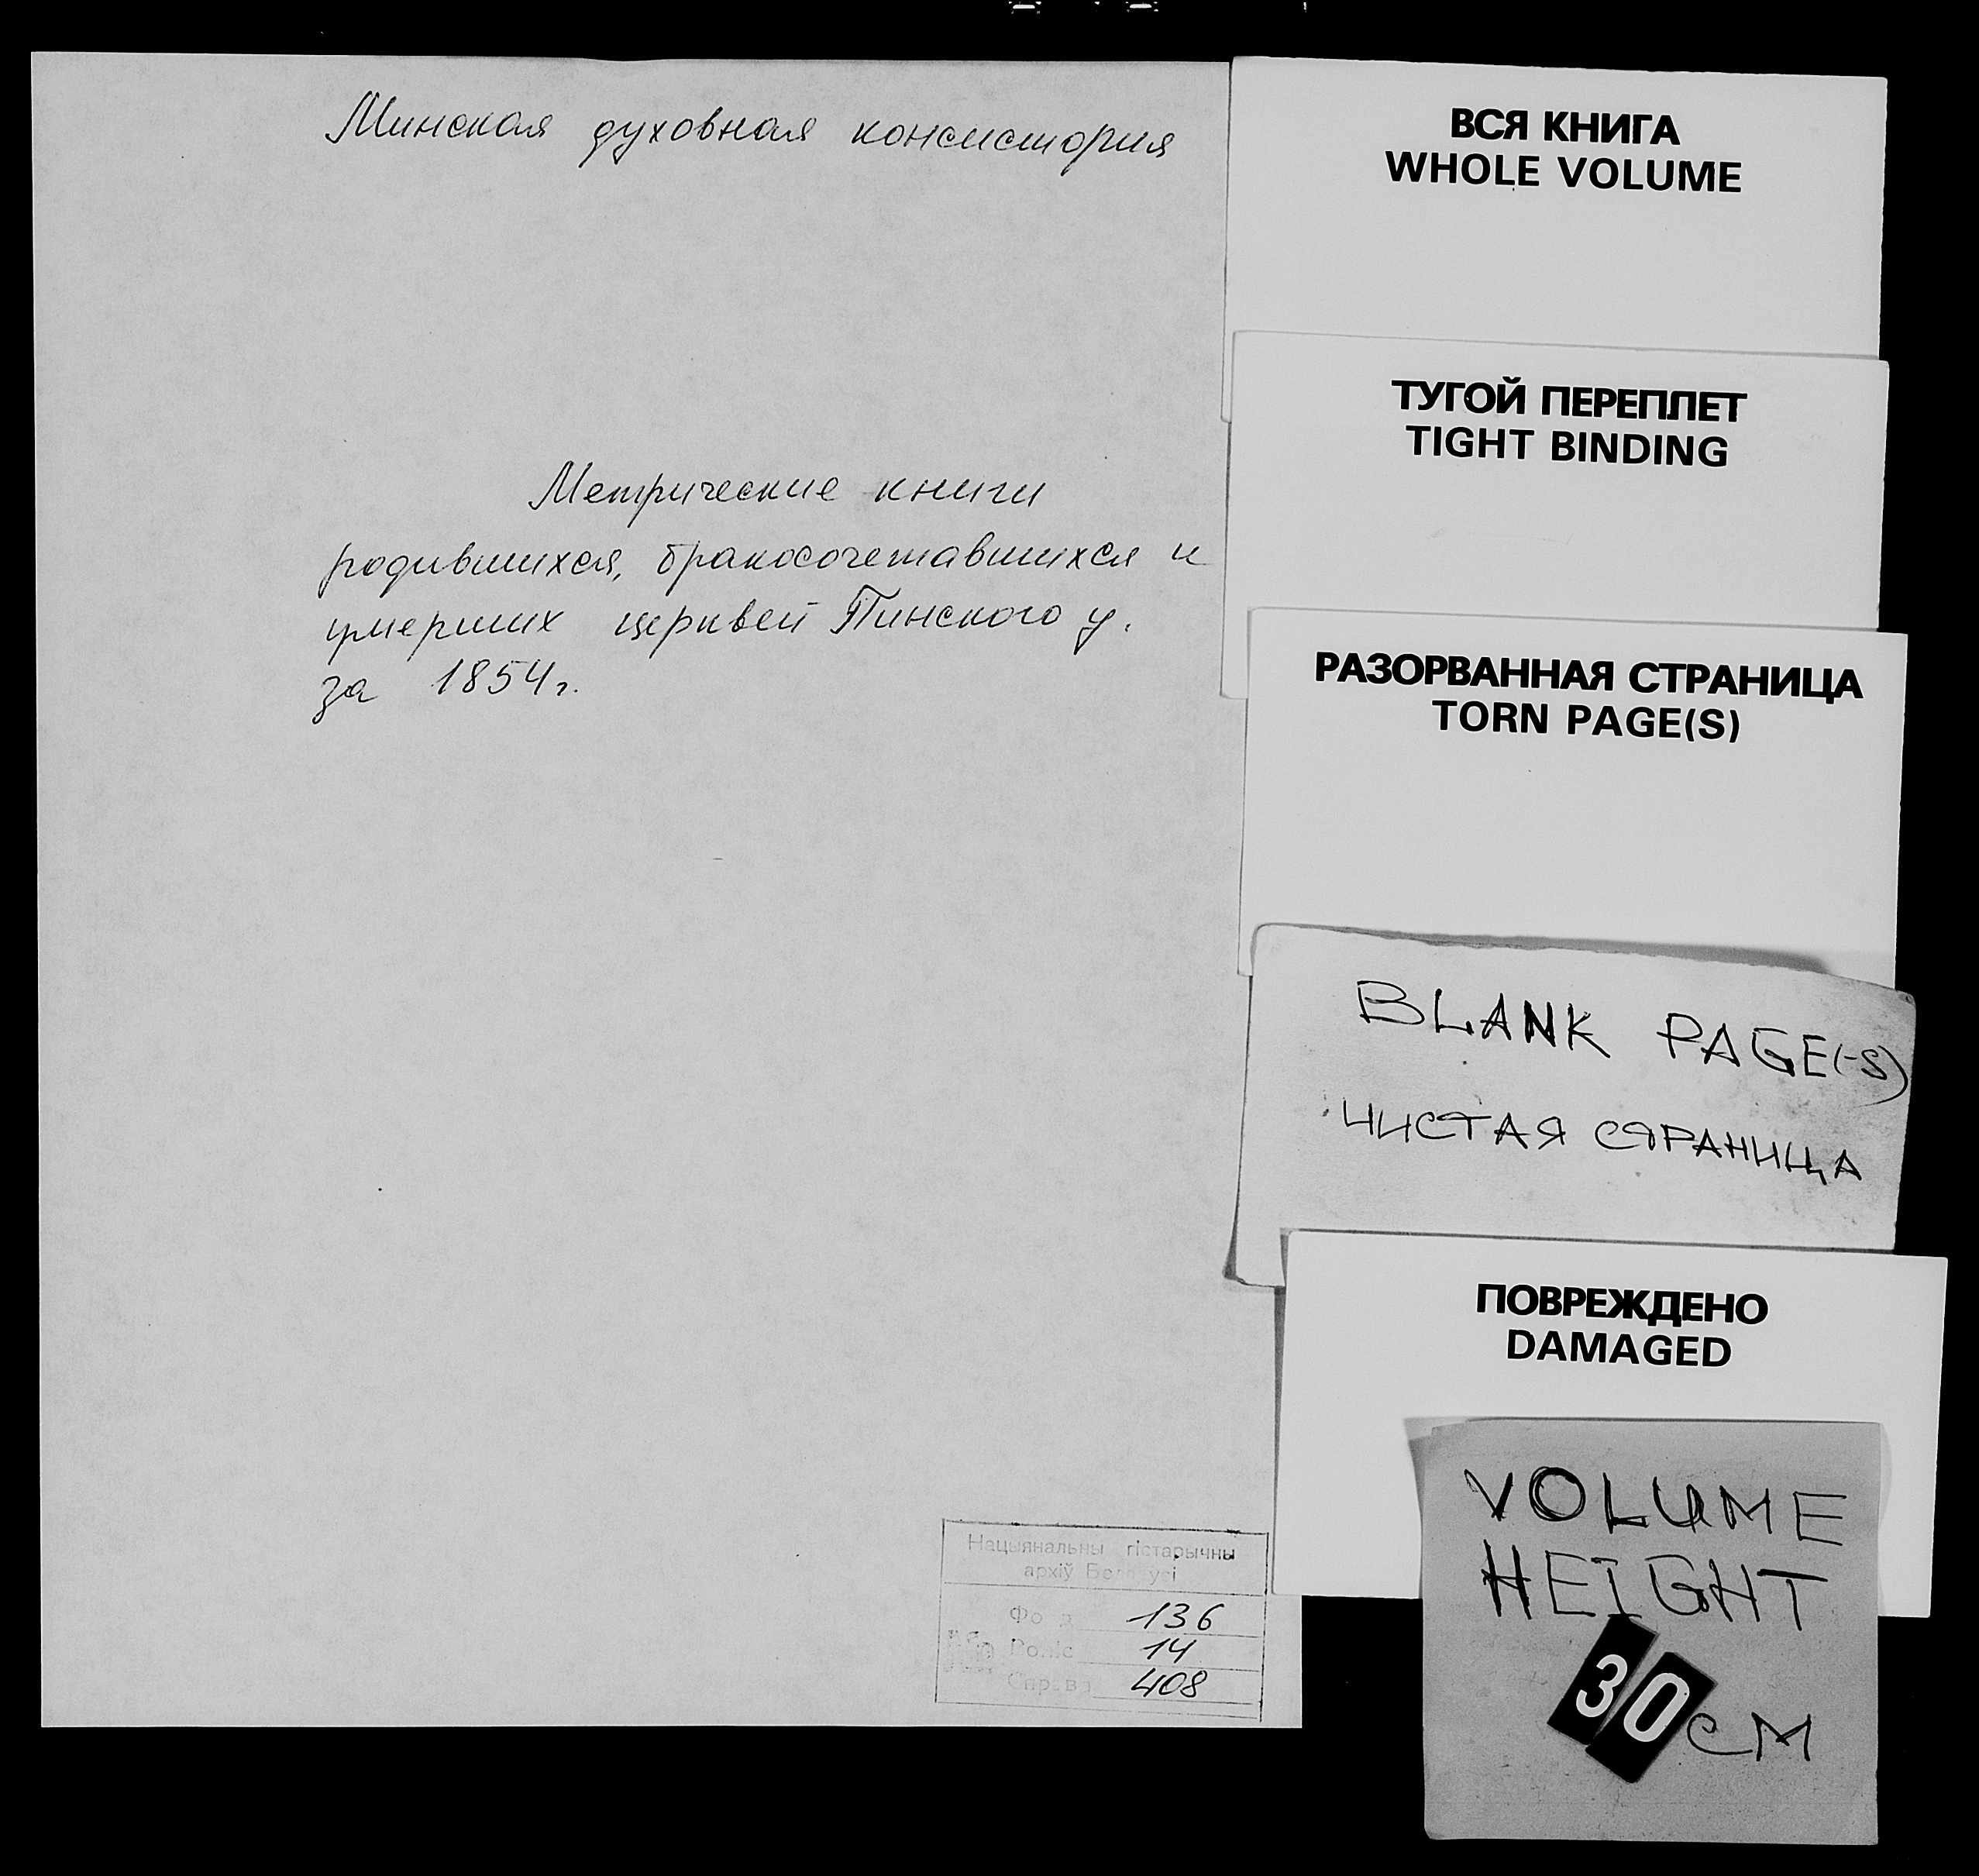 Минская духовная консистория
Метрические книги
родившихся, бракосочетавшихся и
умерших церквей Пинского у.
за 1854 г.
Нацыянальны гістарычны
архіў Беларусі
Фонд 136
Вопіс 14
Справа 408
ВСЯ КНИГА
WHOLE VOLUME
ТУГОЙ ПЕРЕПЛЕТ
TIGHT BINDING
РАЗОРВАННАЯ СТРАНИЦА
TORN PAGE(S)
BLANK PAGE(-S)
ЧИСТАЯ СТРАНИЦА
ПОВРЕЖДЕНО
DAMAGED
VOLUME
HEIGHT
30 CM